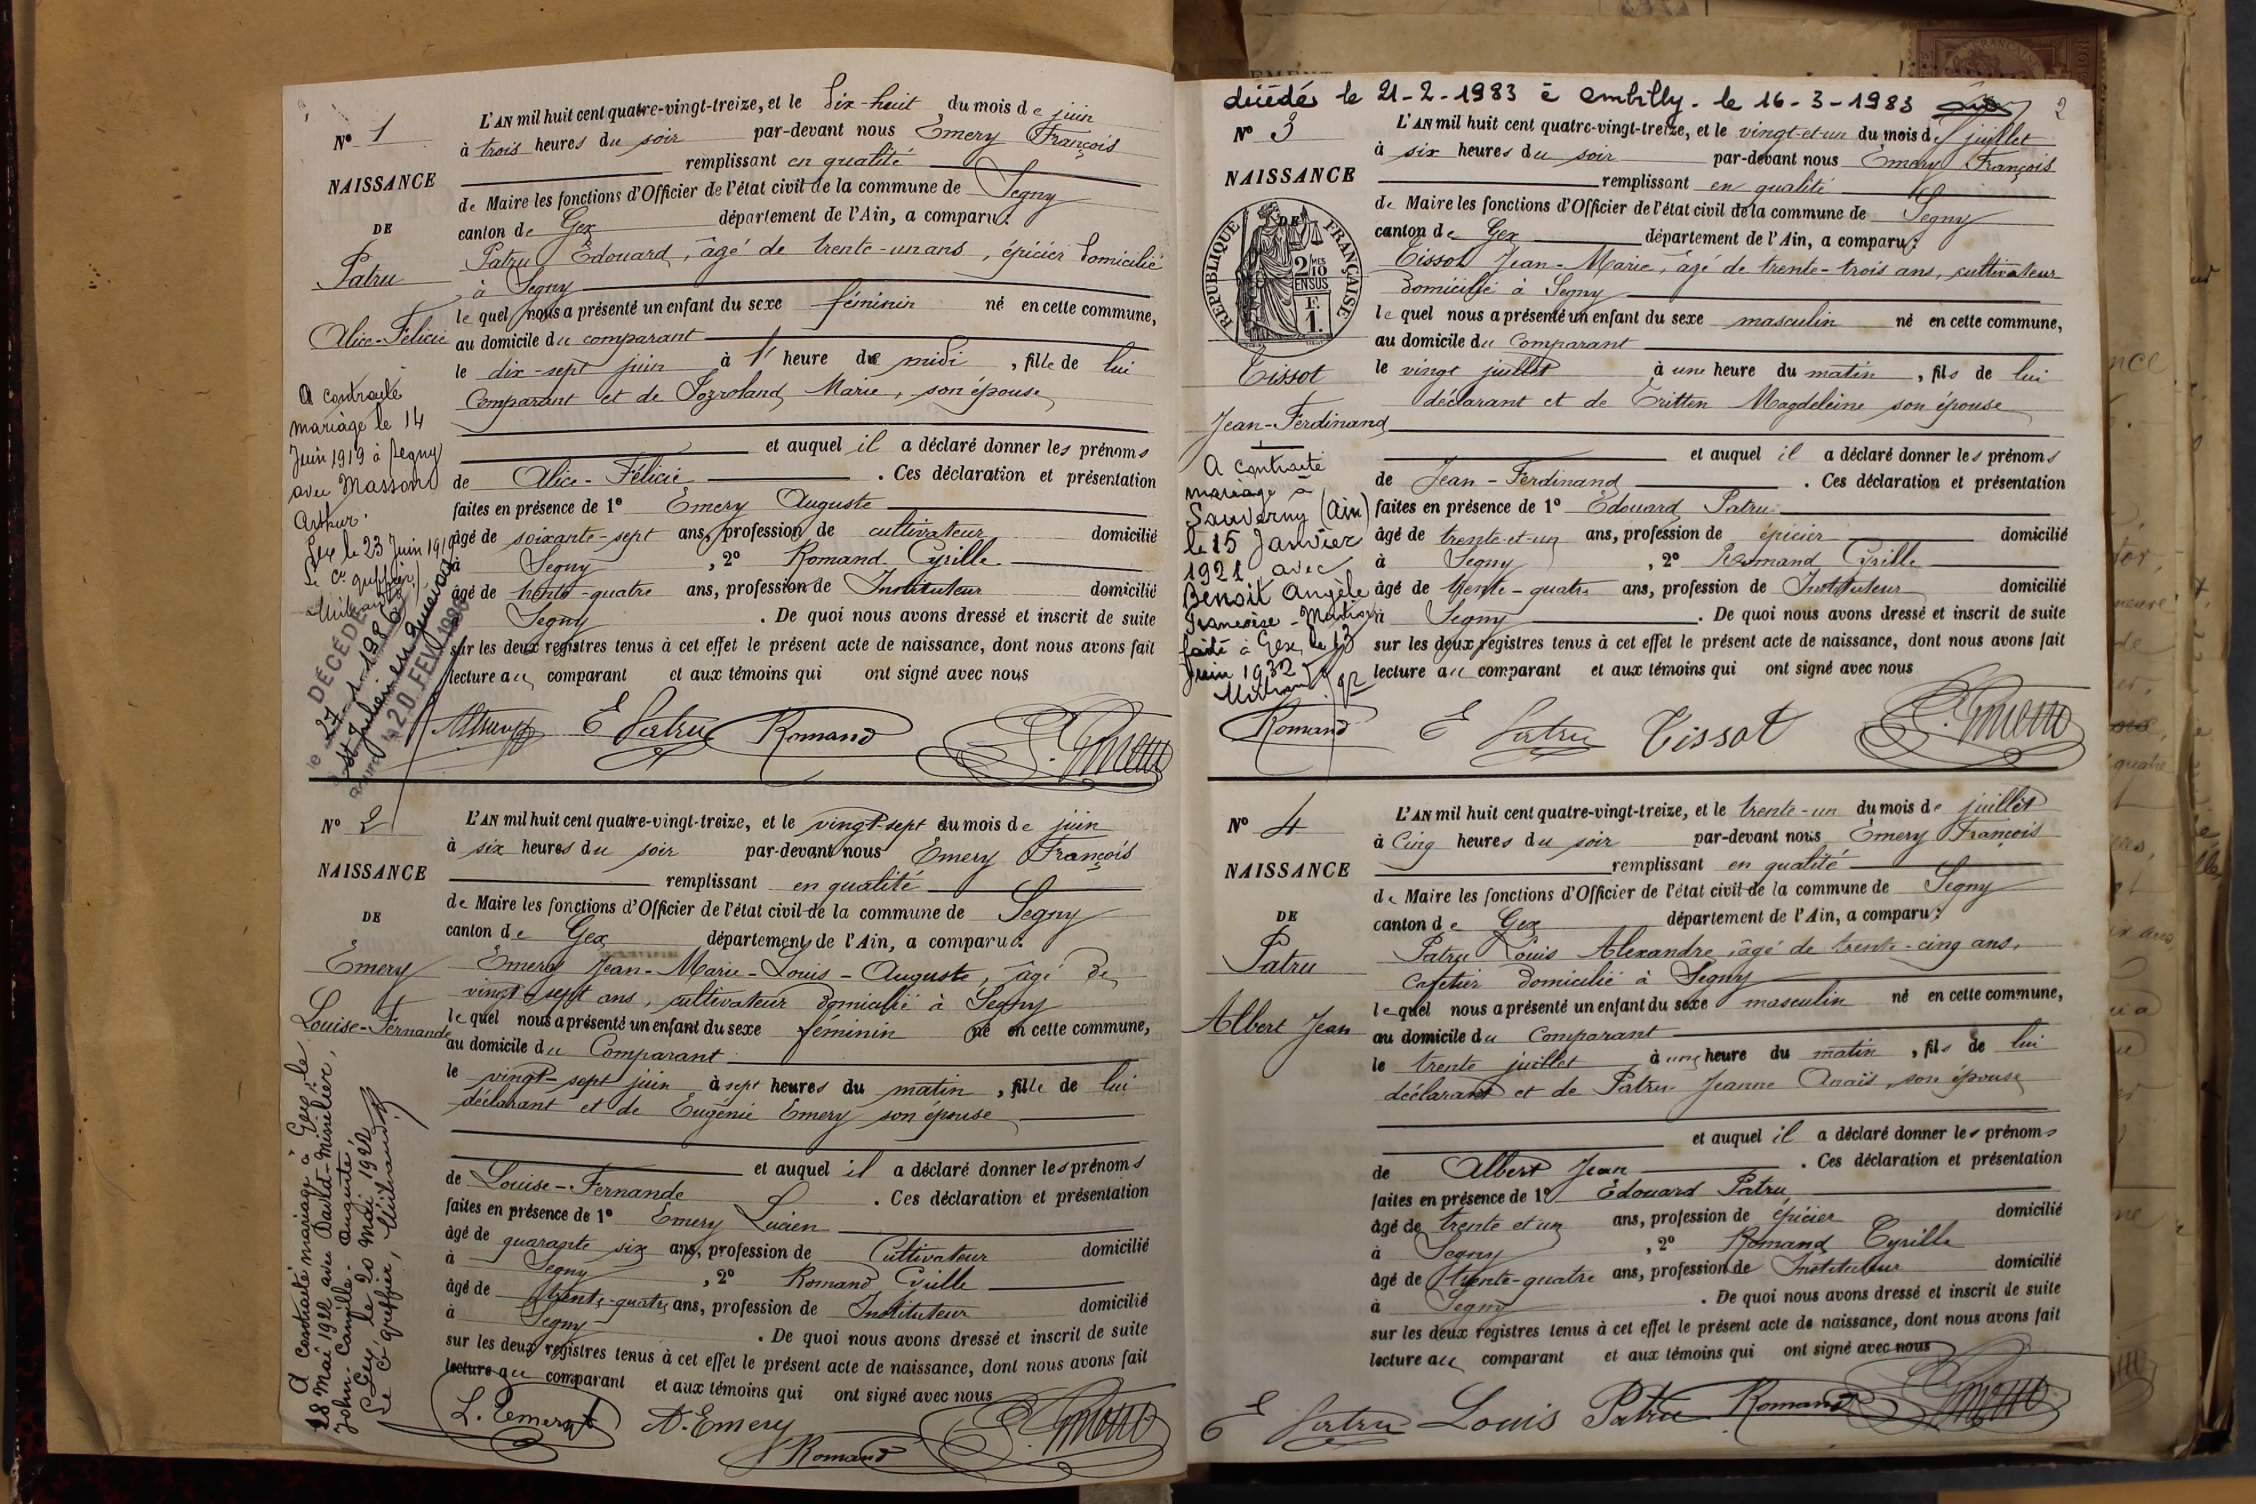 N° 1
NAISSANCE
DE
Patru
Alice-Félicie
A contracté
mariage le 14
Juin 1919 à Segny
avec Masson
Arthur.
Gex le 23 Juin 1919
Le Cs greffier,
DÉCÉDÉE
le 27.1.1986
à St Julien en Genevois
20 FEV 1986
L'AN mil huit cent quatre-vingt-treize, et le dix-huit du mois de juin
à trois heures du soir par-devant nous Emery François
remplissant en qualité
de Maire les fonctions d'Officier de l'état civil de la commune de Segny
canton de Gex département de l'Ain, a comparu :
Patru Edouard, âgé de trente-un ans, épicier domicilié
à Segny
lequel nous a présenté un enfant du sexe féminin né en cette commune,
au domicile du comparant
le dix-sept juin à 1 heure de midi, fille de lui
comparant et de Marie, son épouse
et auquel il a déclaré donner les prénoms
de Alice-Félicie. Ces déclaration et présentation
faites en présence de 1° Emery Auguste
âgé de soixante-sept ans, profession de cultivateur domicilié
à Segny, 2° Romand Cyrille
âgé de trente-quatre ans, profession de Instituteur domicilié
Segny. De quoi nous avons dressé et inscrit de suite
sur les deux registres tenus à cet effet le présent acte de naissance, dont nous avons fait
lecture au comparant et aux témoins qui ont signé avec nous
E Patru Romand
N° 2
NAISSANCE
DE
Emery
Louise-Fernande
A contracté mariage à Gex le
18 Mai 1922 avec David-Minilier,
John-Camille-Auguste.
Gex, le 20 Mai 1922
Le Cs greffier,
L'AN mil huit cent quatre-vingt-treize, et le vingt-sept du mois de juin
à six heures du soir par-devant nous Emery François
remplissant en qualité
de Maire les fonctions d'Officier de l'état civil de la commune de Segny
canton de Gex département de l'Ain, a comparu :
Emery Jean-Marie-Louis-Auguste, âgé de
vingt-sept ans, cultivateur domicilié à Segny
lequel nous a présenté un enfant du sexe féminin né en cette commune,
au domicile du Comparant
le vingt-sept juin à sept heures du matin, fille de lui
déclarant et de Eugénie Emery son épouse
et auquel il a déclaré donner les prénoms
de Louise-Fernande. Ces déclaration et présentation
faites en présence de 1° Emery Lucien
âgé de quarante six ans, profession de Cultivateur domicilié
à Segny, 2° Romand Cyrille
âgé de trente-quatre ans, profession de Instituteur domicilié
à Segny. De quoi nous avons dressé et inscrit de suite
sur les deux registres tenus à cet effet le présent acte de naissance, dont nous avons fait
lecture au comparant et aux témoins qui ont signé avec nous
A. Emery
Romand
décédé le 21-2-1983 à Ambilly - le 16-3-1983
2
N° 3
NAISSANCE
DE
RÉPUBLIQUE FRANÇAISE
2/10 MES
EN SUS
F.
1.
Tissot
Jean-Ferdinand
A contracté
mariage à
Sauverny (Ain)
le 15 Janvier
1921 avec
Benoit Angèle
Françoise - Mention
faite à Gex, le 13
Juin 1932
L'AN mil huit cent quatre-vingt-treize, et le vingt-et-un du mois de juillet
à six heures du soir par-devant nous Emery François
remplissant en qualité
de Maire les fonctions d'Officier de l'état civil de la commune de Segny
canton de Gex département de l'Ain, a comparu :
Tissot Jean-Marie, âgé de trente-trois ans, cultivateur
domicilié à Segny
lequel nous a présenté un enfant du sexe masculin né en cette commune,
au domicile du Comparant
le vingt juillet à une heure du matin, fils de lui
déclarant et de Tritten Magdeleine son épouse
et auquel il a déclaré donner les prénoms
de Jean-Ferdinand. Ces déclaration et présentation
faites en présence de 1° Edouard Patru
âgé de trente-et-un ans, profession de épicier domicilié
à Segny, 2° Romand Cyrille
âgé de trente-quatre ans, profession de Instituteur domicilié
à Segny. De quoi nous avons dressé et inscrit de suite
sur les deux registres tenus à cet effet le présent acte de naissance, dont nous avons fait
lecture au comparant et aux témoins qui ont signé avec nous
Romand E Patru Tissot
N° 4
NAISSANCE
DE
Patru
Albert Jean
L'AN mil huit cent quatre-vingt-treize, et le trente-un du mois de juillet
à cinq heures du soir par-devant nous Emery François
remplissant en qualité
de Maire les fonctions d'Officier de l'état civil de la commune de Segny
canton de Gex département de l'Ain, a comparu :
Patru Louis Alexandre, âgé de trente-cinq ans,
cafetier domicilié à Segny
lequel nous a présenté un enfant du sexe masculin né en cette commune,
au domicile du Comparant
le trente juillet à une heure du matin, fils de lui
déclarant et de Patru Jeanne Anaïs, son épouse
et auquel il a déclaré donner les prénoms
de Albert Jean. Ces déclaration et présentation
faites en présence de 1° Edouard Patru
âgé de trente et un ans, profession de épicier domicilié
à Segny, 2° Romand Cyrille
âgé de trente-quatre ans, profession de Instituteur domicilié
à Segny. De quoi nous avons dressé et inscrit de suite
sur les deux registres tenus à cet effet le présent acte de naissance, dont nous avons fait
lecture au comparant et aux témoins qui ont signé avec nous
E Patru Louis Patru Romand